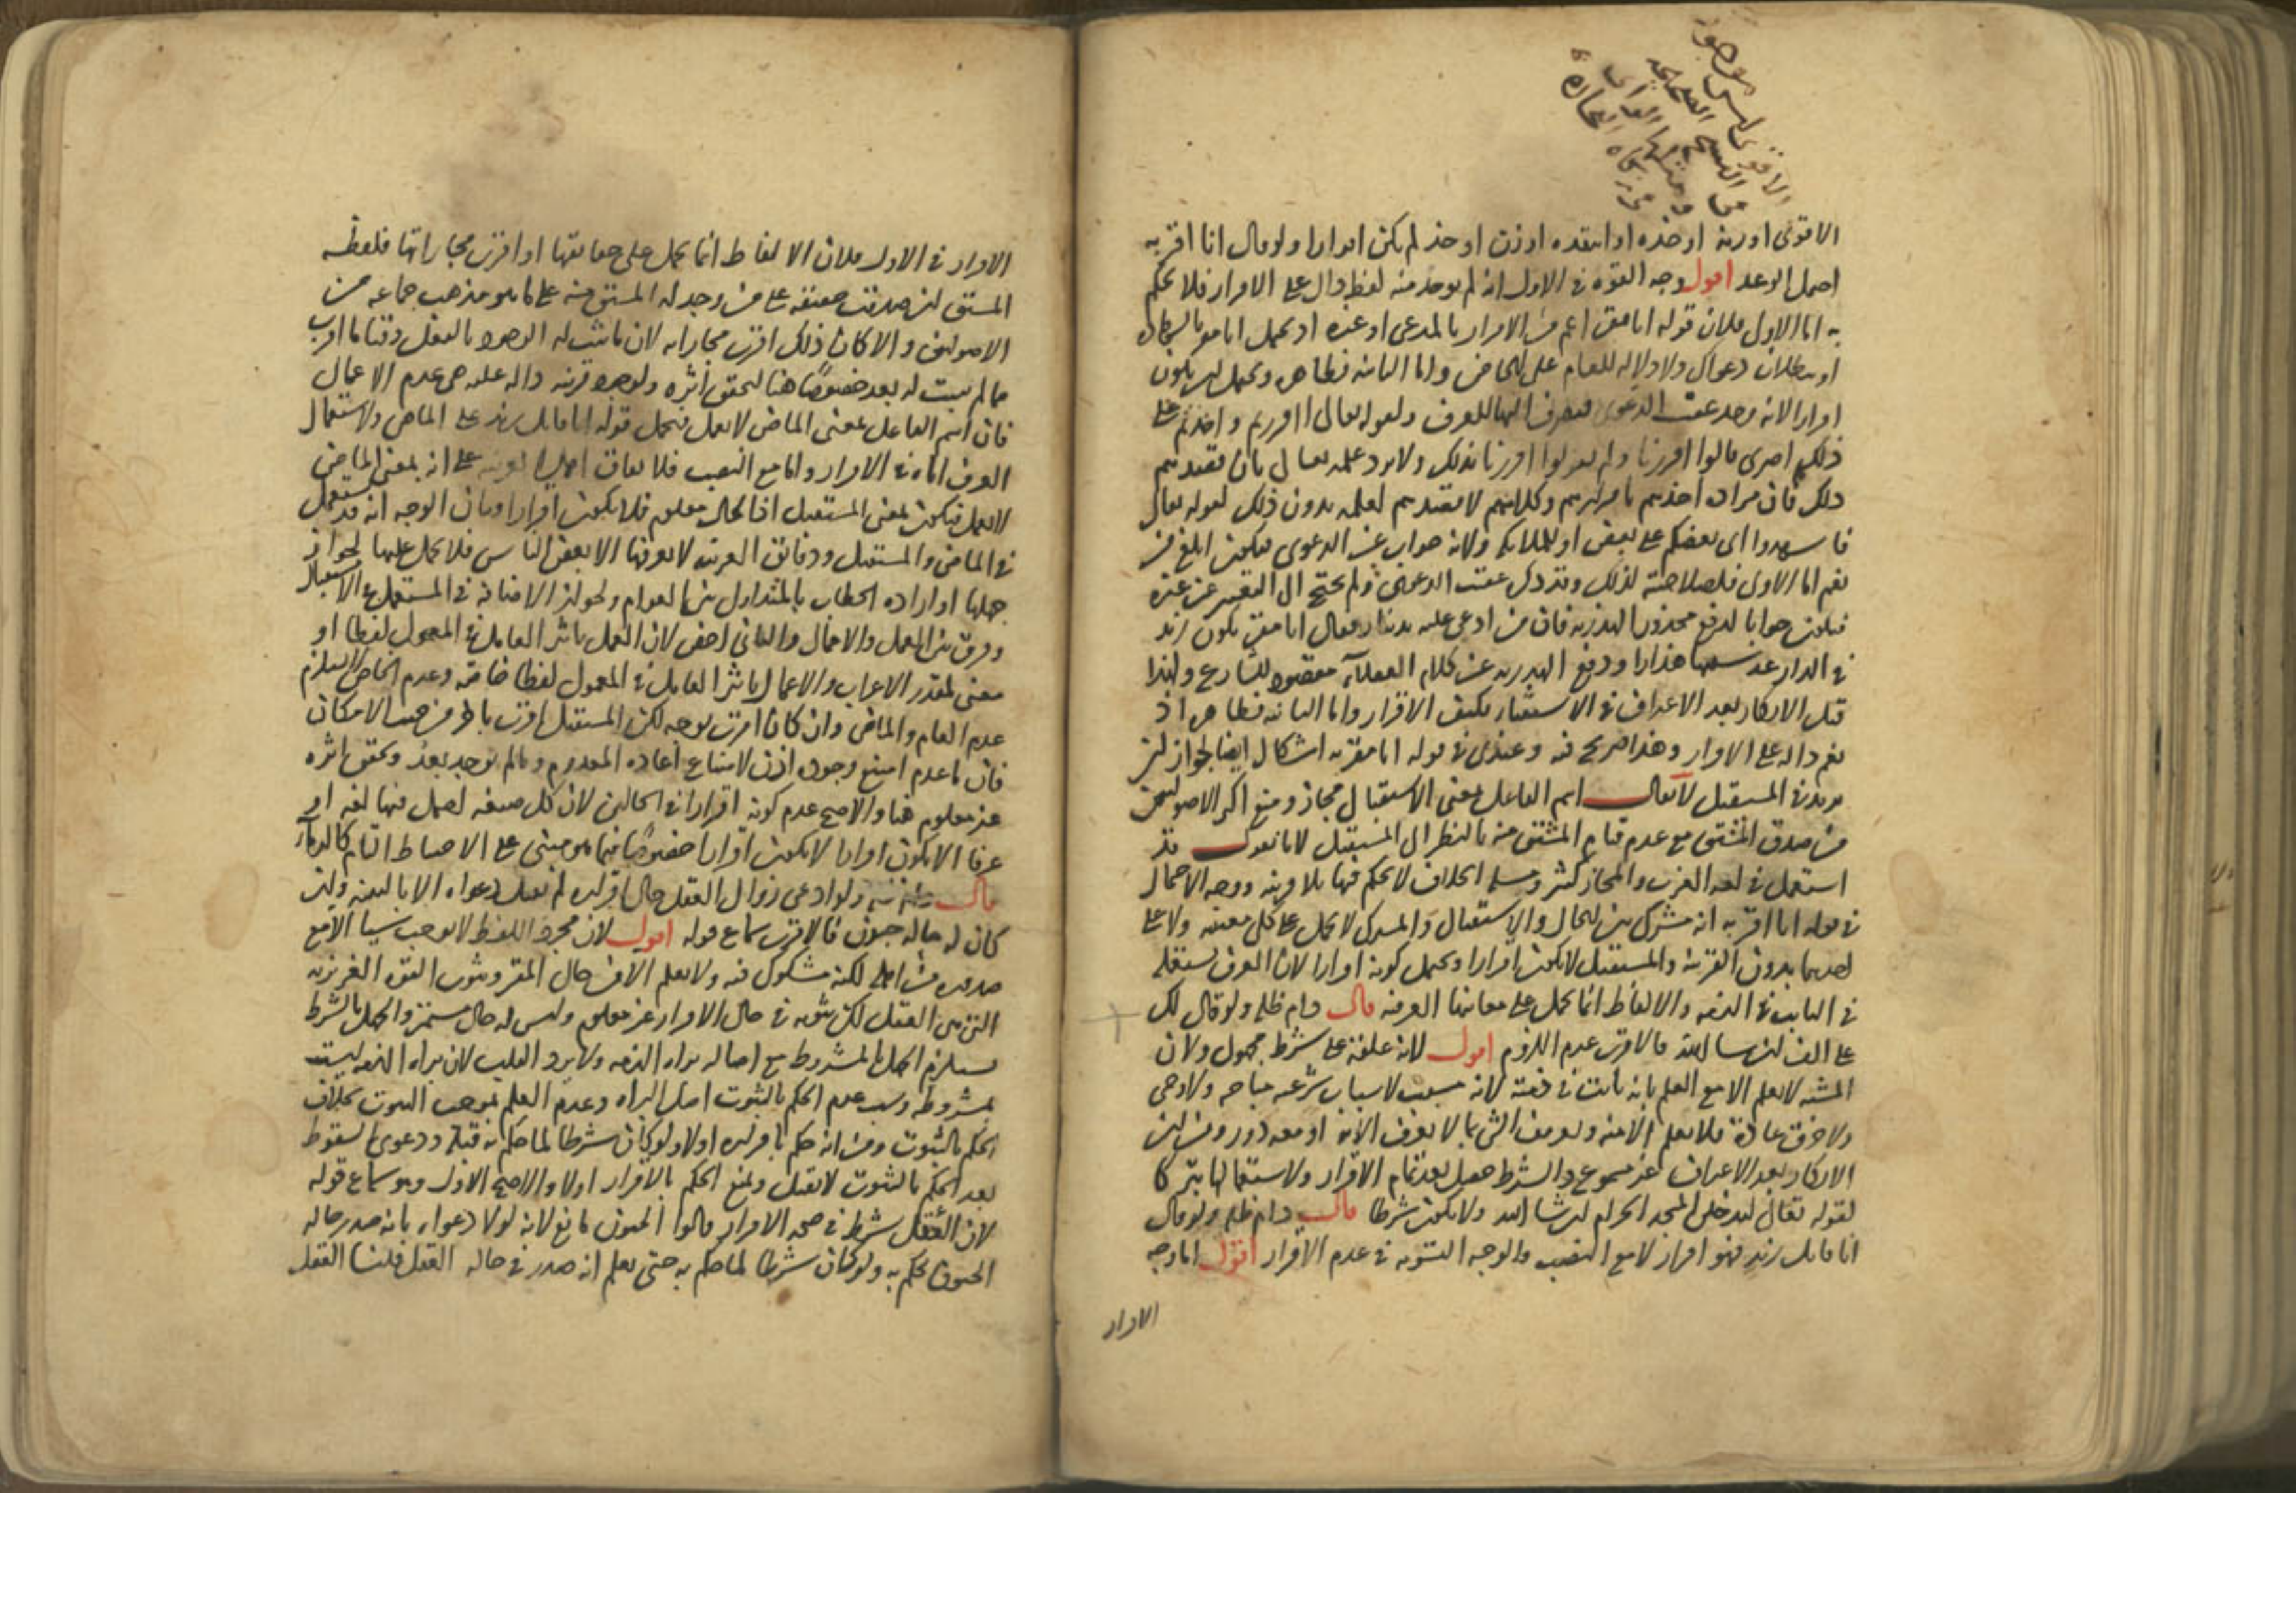 الاقوى او زنه او خذه او انتقده او زن او خذ لم يكن اقرارا ولو قال انا اقر به
احتمل الوعد اقول وجه القوة في الاول انه لم يوجد منه لفظ دال على الاقرار فلا يحكم
به اما الاول فلان قوله انا مقر اعم من الاقرار بالمدعى او غيره او يحتمل انا مقر بالشهادة
او ببطلان دعواك ولا دلالة للعام على الخاص واما الثانية فظاهر ويحتمل ان يكون
اقرارا لانه وجد عقب الدعوى فيصرف اليها للعرف ولقوله تعالى أأقررتم واخذتم على
ذلكم اصرى قالوا اقررنا ولم يقولوا اقررنا بذلك ولا يرد علمه تعالى بان تقيدهم
ذلك فان مراده اخذهم باقرارهم وكلامهم لا تقيدهم لعلمه بدون ذلك لقوله تعالى
فاشهدوا اى بعضكم على بعض او للملائكة ولانه جواب عن الدعوى فيكون ابلغ من
نعم اما الاولى فلصلاحيته لذلك وقد ذكر عقيب الدعوى ولم يحتج الى التفسير عن غيره
فيكون جوابا لدفع محذور الهذرية فان من ادعى عليه بدينار فقال انا مقر بكون زيد
في الدار عد سفها هذارا ودفع الهذرية عن كلام العقلاء مقصود للشارع ولهذا
قبل الانكار بعد الاعتراف في الاستثناء بكيف الاقرار واما الثانية فظاهر اذ
نعم دالة على الاقرار وهذا صريح فيه وعندى في قوله انا مقر به اشكال ايضا لجواز ان
يريد في المستقبل لا يقال اسم الفاعل بمعنى الاستقبال مجاز ومنع اكثر الاصوليين
من صدق المشتق مع عدم قيام المشتق منه بالنظر الى المستقبل لانا نقول قد
استعمل في لغة العرب والمجاز كثير ومسلم الخلاف لا يحكم فيها بلا قرينة ووجه الاحتمال
في قوله انا اقر به انه مشترك بين الحال والاستقبال والمشترك لا يحمل على كل معنييه ولا على
احدهما بدون القرينة والمستقبل لا يكون اقرارا ويحتمل كونه اقرارا لان العرف يستعمله
في الثابت في الذمة والالفاظ انما تحمل على معانيها العرفية قال دام ظله ولو قال لك
على الف ان شاء الله فالاقرب عدم اللزوم اقول لانه علقه على شرط مجهول ولان
المشية لا تعلم الا مع العلم بانه ثابت في ذمته لانه مسبب لاسباب شرعية مباحة ولا وحى
ولا خرق عادة فلا يعلم الا منه وتعريف الشئ بما لا يعرف الا به او معه دور ومن ان
الانكار بعد الاعتراف غير مسموع والشرط حصل بعد تمام الاقرار ولاستعمالها تبركا
لقوله تعالى لتدخلن المسجد الحرام ان شاء الله ولا يكون شرطا قال دام ظله ولو قال
انا قاتل زيد فهو اقرار لا مع النصب والوجه التسوية في عدم الاقرار اقول اما وجه
الاقرار
الاقرار في الاول فلان الالفاظ انما تحمل على حقايقها او اقرب مجازاتها فلفظة
المشتق ان صدقت حقيقة على من وجد له المشتق منه على ما هو مذهب جماعة من
الاصوليين والا كان ذلك اقرب مجازاته لان ما ثبت له الوجود بالفعل وقتا ما اقرب
مما لم يثبت له بعد خصوصا هنا لتحقق اثره ولوجود قرينة دالة عليه هى عدم الاعمال
فان اسم الفاعل بمعنى الماضى لا يعمل فيحمل قوله انا قاتل زيد على الماضى ولاستعمال
العرف اياه في الاقرار واما مع النصب فلا تفاق اهل العربية على انه بمعنى الماضى
لا يعمل فيكون بمعنى المستقبل اذ الحال معلوم فلا يكون اقرارا وبيان الوجه انه قد يستعمل
في الماضى والمستقبل ودقائق العربية لا يعرفها الا بعض الناس فلا يحمل عليها لجواز
جهلها او ارادة الخطاب بالمتداول بين العوام ولجواز الاضافة في المستعمل في الاستقبال
وفرق بين العمل والاعمال والثانى اخص لان العمل تاثير العامل في المعمول لفظا او
معنى لمقدر الاعراب والاعمال تاثير العامل في المعمول لفظا خاصة وعدم الخاص لا يستلزم
عدم العام والماضى وان كان اقرب بوجه لكن المستقبل اقرب باخر من حيث الامكان
فان ما عدم امتنع وجوده اذن لامتناع اعادة المعدوم وما لم يوجد بعد وتحقق اثره
غير معلوم هنا والاصح عدم كونه اقرارا في الحالين لان كل صيغة تحتمل فيها لغة او
عرفا الا يكون اقرارا لا يكون اقرارا خصوصا فيما هو مبنى على الاحتياط التام كالدماء
قال ولو ادعى زوال العقل حال اقراره لم تقبل دعواه الا بالبينة وان
كان له حالة جنون فالاقرب سماع قوله اقول لان مجرد اللفظ لا يوجب شيئا الا مع
صدوره من اهله لكنه مشكوك فيه ولا يعلم الا من حال المقر وثبوت القوة الغريزية
التى هى العقل لكن ثبوته في حال الاقرار غير معلوم وليس له حال مستمر والجهل بالشرط
يستلزم الجهل بالمشروط مع اصالة براءة الذمة ولا يرد القلب لان براءة الذمة ليست
بمشروطة وسبب عدم الحكم بالثبوت اصل البراءة وعدم العلم بموجب الثبوت بخلاف
الحكم بالثبوت ومن انه حكم باقراره اولا ولو كان شرطا لما حكم به قبله ودعوى السقوط
بعد الحكم بالثبوت لا تقبل ونمنع الحكم بالاقرار اولا والاصح الاول وهو سماع قوله
لان العقل شرط في صحة الاقرار قالوا الجنون مانع لانه لولا دعواه بانه صدر حالة
الجنون لحكم به ولو كان شرطا لما حكم به حتى يعلم انه صدر في حالة العقل قلنا العقل